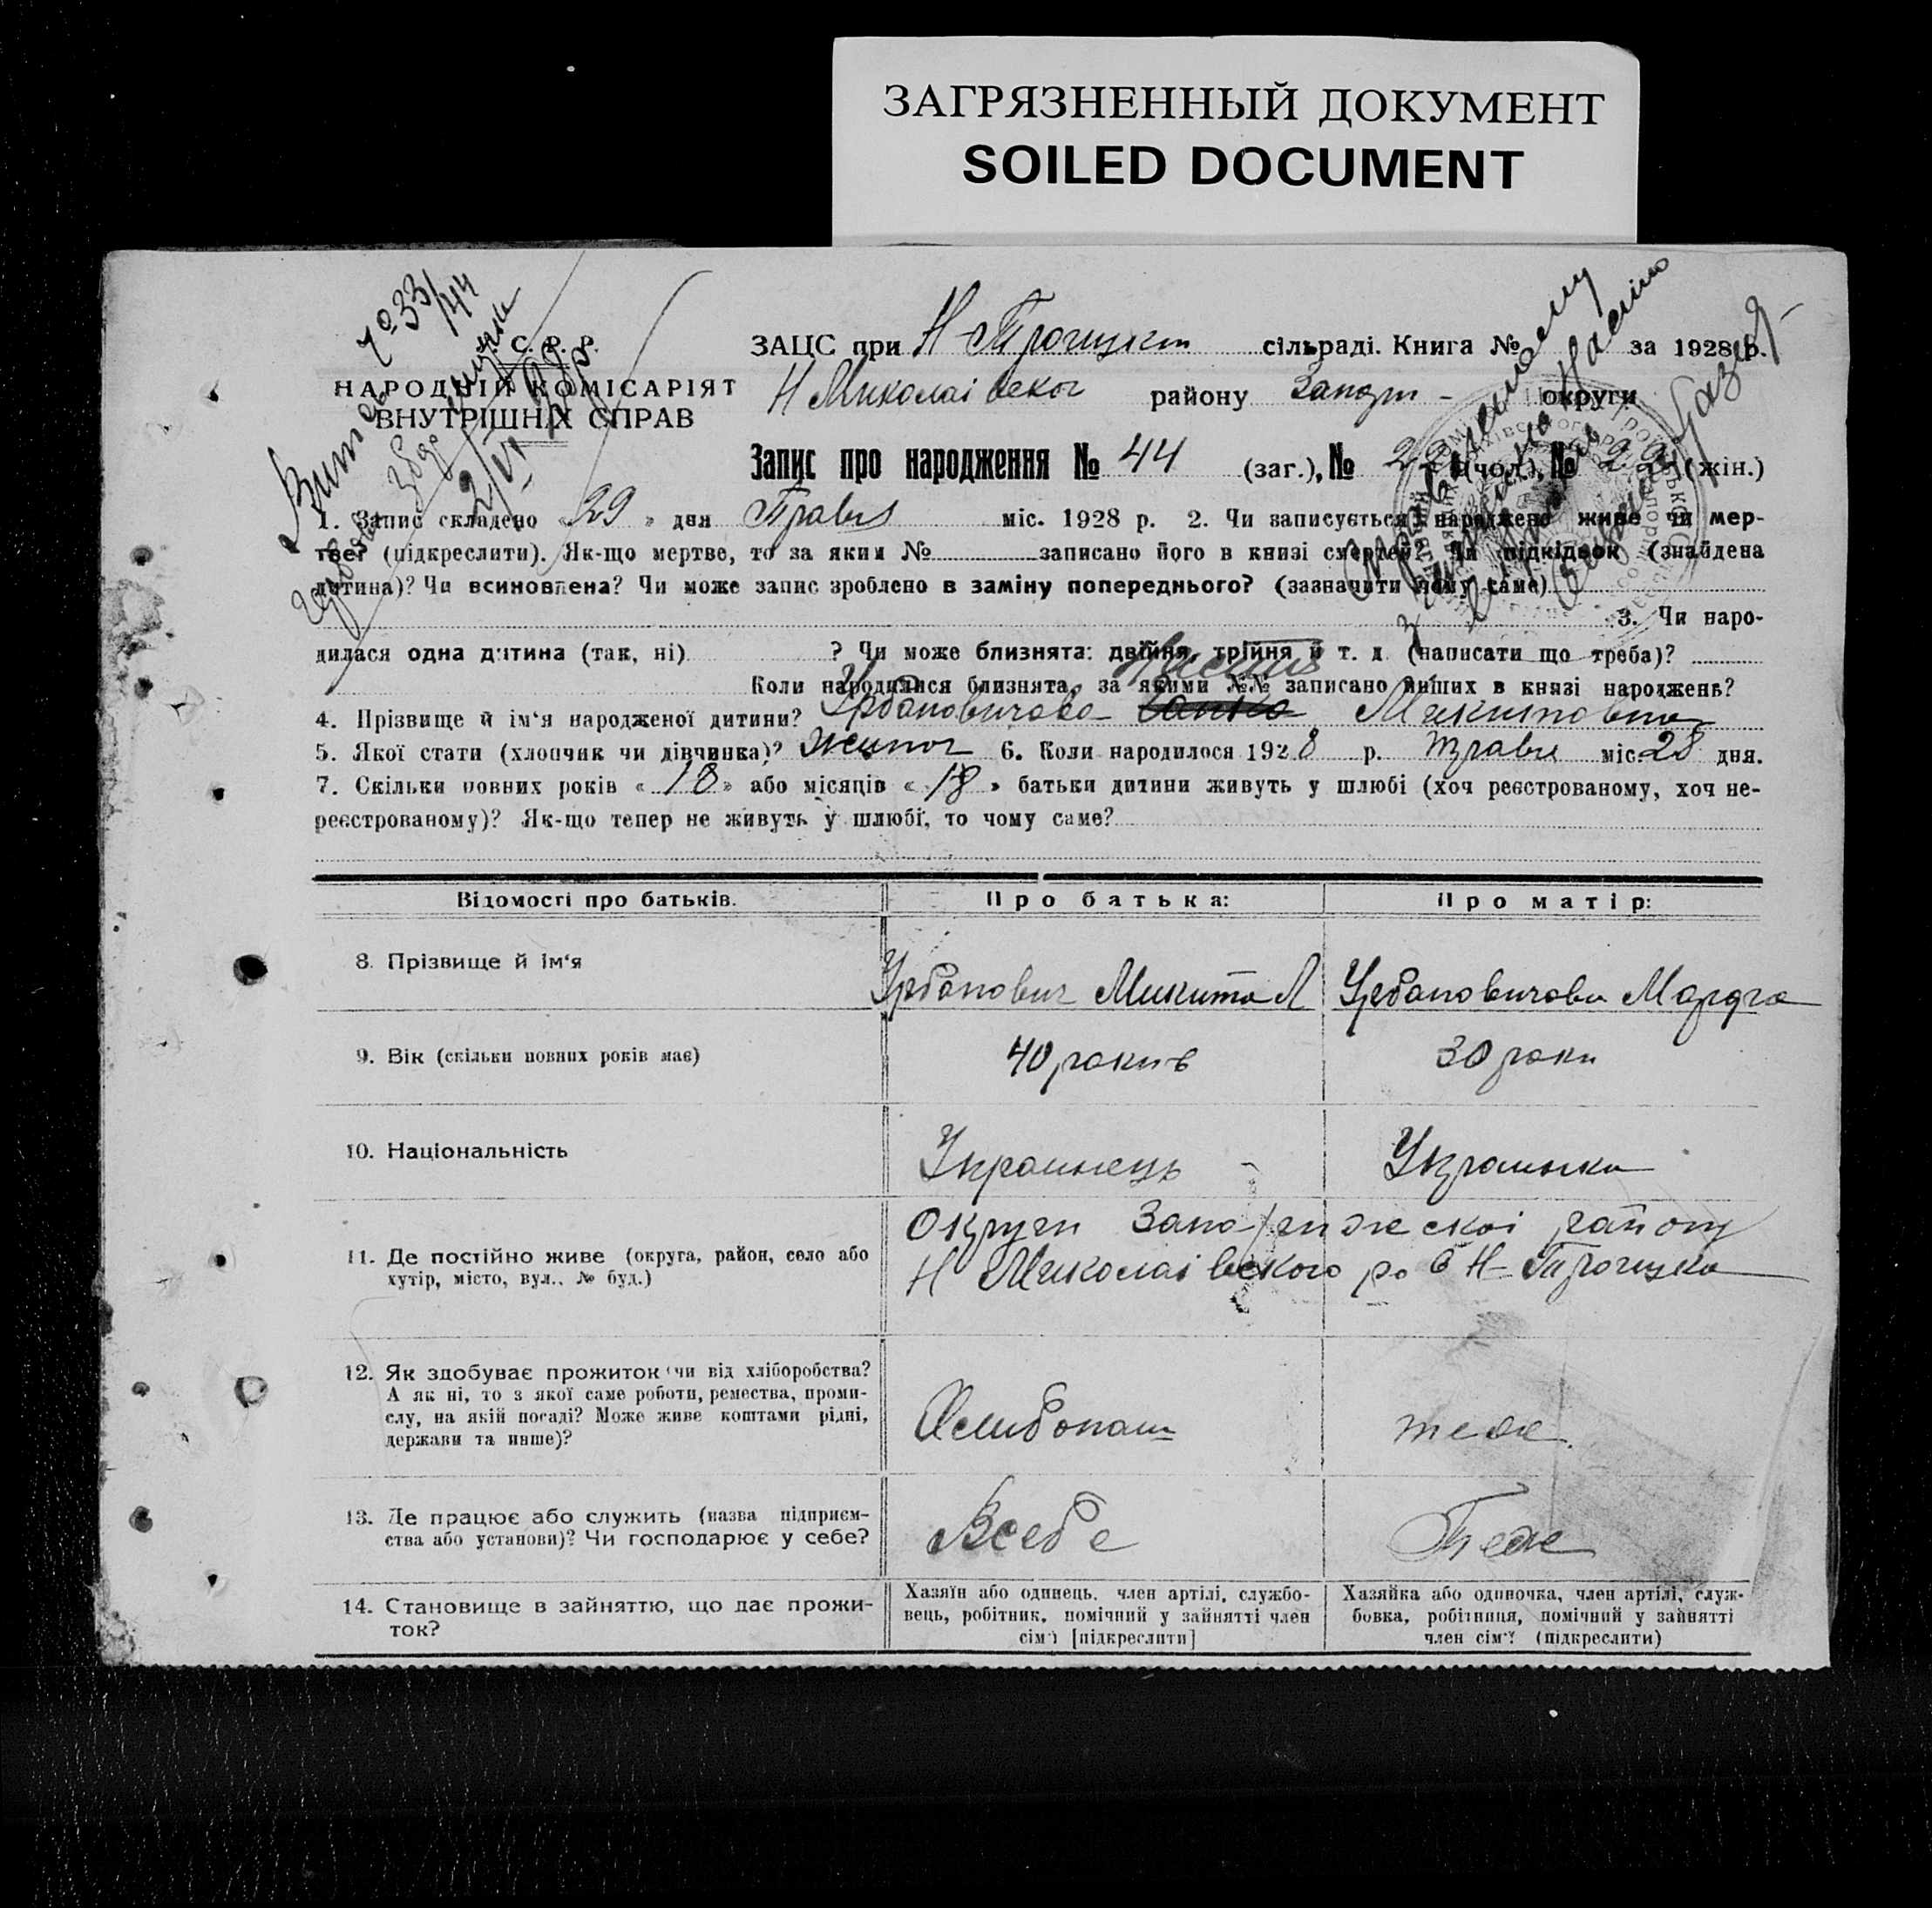 ЗАГРЯЗНЕННЫЙ ДОКУМЕНТ
SOILED DOCUMENT
С. Р. Р.
НАРОДНІЙ КОМІСАРІЯТ
ВНУТРІШНІХ СПРАВ
ЗАЦС при Н-Троицкт сільраді. Книга № за 1928 р.
Н Миколаівског району Запор - округи
Запис про народження № 44 (заг.), № (чол.), № (жін.)
1. Запис складено « 29 » дня Травня міс. 1928 р. 2. Чи записується народжене живе чи мер-
тве? (підкреслити). Як-що мертве, то за яким № записано його в книзі смертей? Чи підкідьок (знайдена
дитина)? Чи всиновлена? Чи може запис зроблено в заміну попереднього? (зазначити чому саме)
3. Чи наро-
дилася одна дитина (так, ні) ? Чи може близнята: двійня, трійня й т. д. (написати що треба)?
Коли народилися близнята, за якими №№ записано інших в книзі народжень?
4. Прізвище й ім'я народженої дитини? Урбановичова Микитовна
5. Якої стати (хлопчик чи дівчинка)? Жиноч 6. Коли народилося 1928 р. Травня міс. 28 дня.
7. Скільки повних років « 18 » або місяців « 18 » батьки дитини живуть у шлюбі (хоч реєстрованому, хоч не-
реєстрованому)? Як-що тепер не живуть у шлюбі, то чому саме?
Відомості про батьків. Про батька: Про матір:
8. Прізвище й ім'я Урбанович Микита Л Урбановичова Марфа
9. Вік (скільки повних років має) 40 рокив 30 роки
10. Національність Украинець Украинка
11. Де постійно живе (округа, район, село або
хутір, місто, вул., № буд.)
Округи Запорижскоі району
Н Миколаівского ро с Н-Троицка
12. Як здобуває прожиток чи від хліборобства?
А як ні, то з якої саме роботи, ремества, проми-
слу, на якій посаді? Може живе коштами рідні,
держави та инше)?
Хлибопаш теже
13. Де працює або служить (назва підприєм-
ства або установи)? Чи господарює у себе?
Всебе Теже
14. Становище в зайняттю, що дає прожи-
ток?
Хазяїн або одинець, член артілі, службо-
вець, робітник, помічний у зайнятті член
сім'ї [підкреслити]
Хазяйка або одиночка, член артілі, служ-
бовка, робітниця, помічний у зайнятті
член сім'ї (підкреслити)